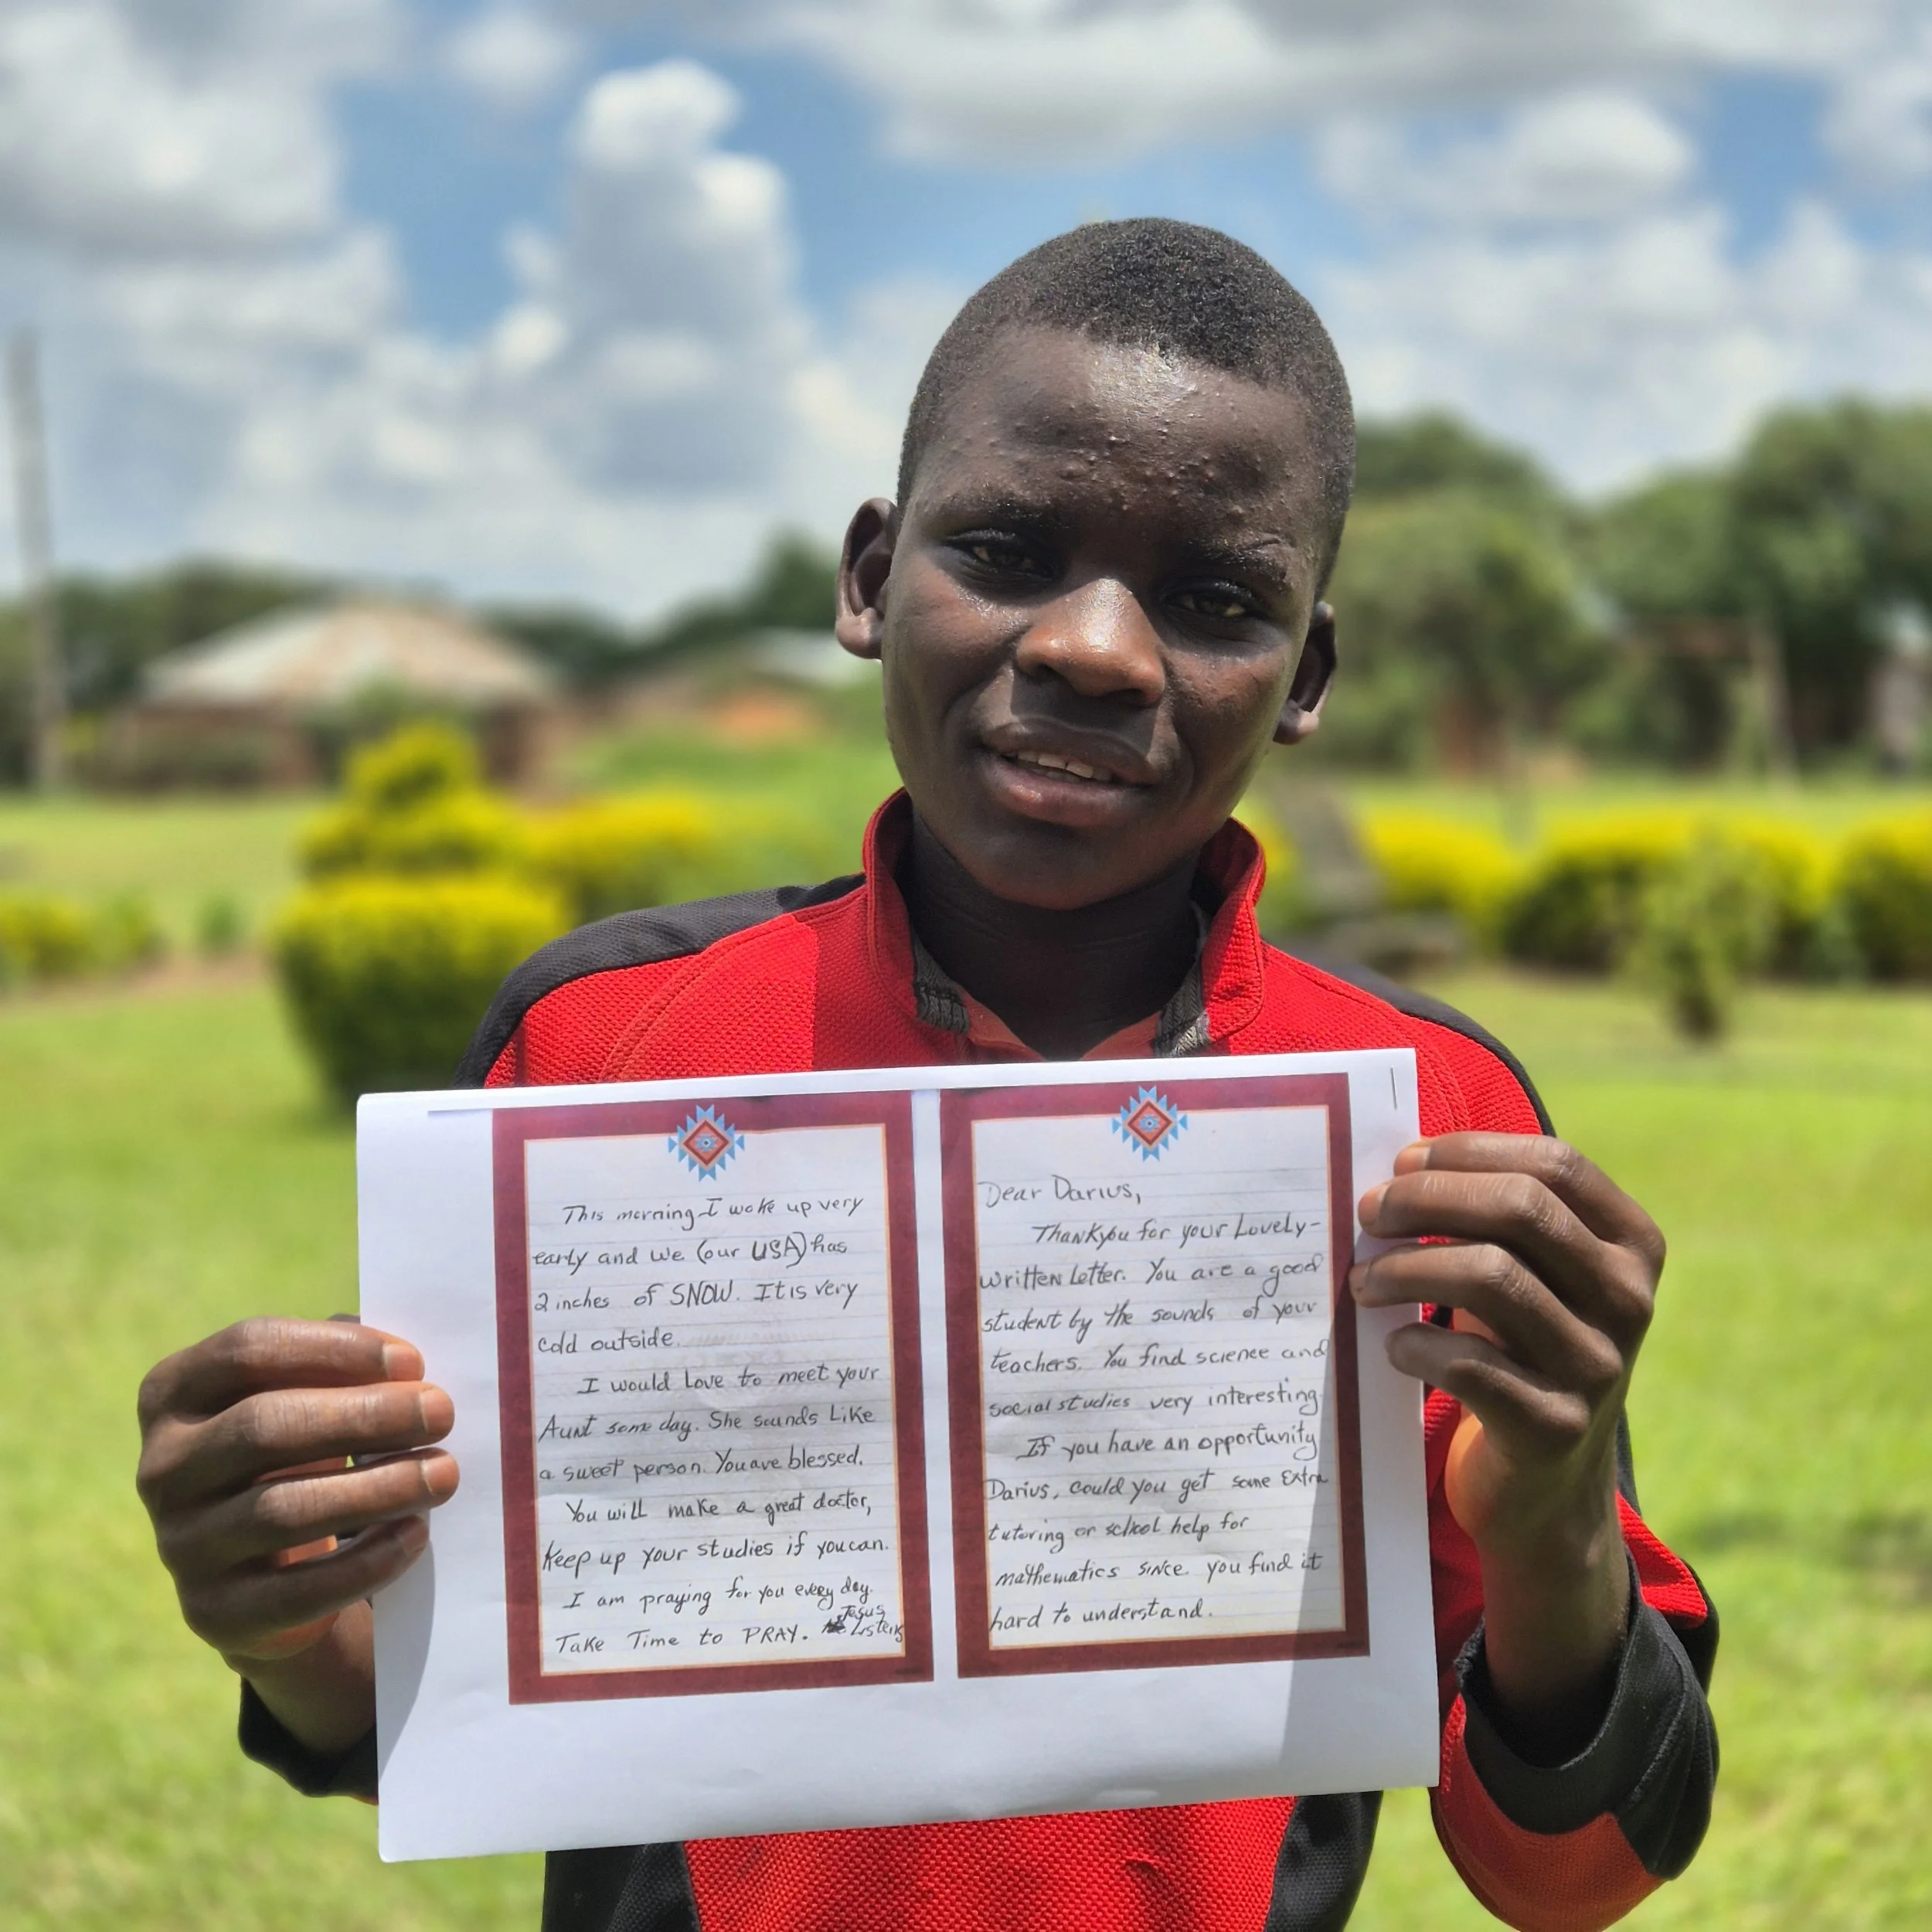 This morning I woke up very
early and we (our USA) has
2 inches of SNOW. It is very
cold outside.
I would Love to meet your
Aunt some day. She sounds Like
a sweet person. You are blessed.
You will make a great doctor,
Keep up your studies if you can.
I am praying for you every day.
Take Time to PRAY. Jesus
Listens
Dear Darius,
Thankyou for your Lovely-
written Letter. You are a good
student by the sounds of your
teachers. You find science and
social studies very interesting
If you have an opportunity
Darius, could you get some Extra
tutoring or school help for
mathematics since you find it
hard to understand.